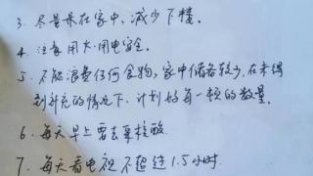 3. 尽量呆在家中，减少下楼。
4. 注意用火、用电安全。
5. 不能浪费任何食物，家中储备较少，在未得
到补充的情况下，计划好每一顿的数量。
6. 每天早上要去采核酸
7. 每天看电视不超过1.5小时.